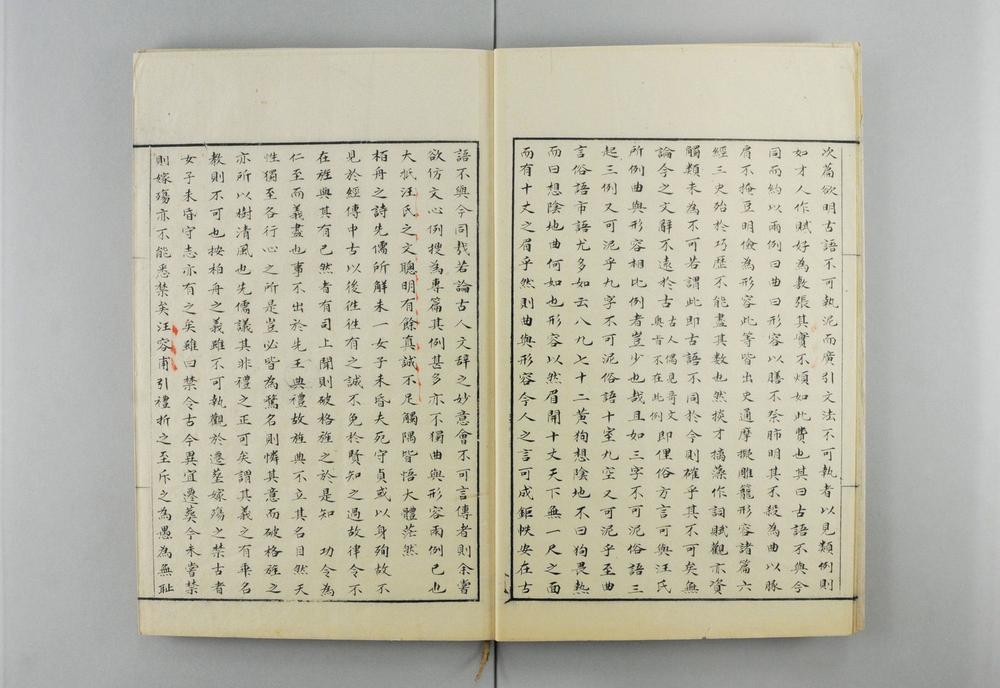 次篇欲明古語不可執泥而廣引文法不可執者以見類例則
如才人作賦好為數張其實不煩如此費也其曰古語不與今
同而約以兩例曰曲曰形容以膳不祭肺明其不殺為曲以豚
肩不掩豆明儉為形容此等皆出史通摩擬雕籠形容諸篇六
經三史殆於巧歷不能盡其數也然掞才摛藻作詞賦觀亦資
觸類未為不可若謂此即古語不同於今則確乎其不可矣無
論今之文辭不遠於古古人偶見奇文與肯不在此例即俚俗方言可與汪氏
所例曲與形容相比例者豈少也哉且如三字不可泥俗語三
起三例又可泥乎九字不可泥俗語十室九空又可泥乎至曲
言俗語市語尤多如云八九七十二黃狗想陰地不曰狗畏熱
而曰想陰地曲何如也形容以然眉開十丈天下無一尺之面
而有十丈之眉乎然則曲與形容今人之言可成鉅帙安在古
語不與今同哉若論古人文辭之妙意會不可言傳者則余嘗
欲仿文心例搜為專篇其例甚多亦不獨曲與形容兩例已也
大抵汪氏之文聰明有餘真誠不足觸隅皆悟大體茫然
栢舟之詩先儒所解未一女子未昏夫死守貞或以身殉故不
見於經傳中古以後徃徃有之誠不免於賢知之過故律令不
在旌典其有已然者有司上聞則破格旌之於是知 功令為
仁至而義盡也事不出於先王典禮故旌典不立其名目然天
性獨至各行心之所是豈必皆為騖名則憐其意而破格旌之
亦所以樹清風也先儒議其非禮之正可矣謂其義之有乖名
教則不可也按柏舟之義雖不可執觀於遷塟嫁殤之禁古者
女子未昏守志亦有之矣雖曰禁令古今異宜遷葬今未嘗禁
則嫁殤亦不能悉禁矣汪容甫引禮折之至斥之為愚為無恥